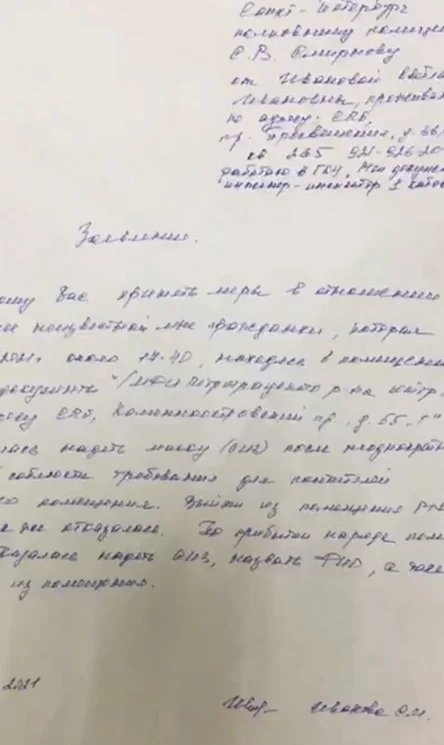 Санкт-Петербург
полковнику полиции
С.В. Смирнову
от Ивановой
Ивановны, прожива
по адресу: СПб,
пр. Просвещения, д. 36/
кв 265 921-926-20
работаю в ГБУ "Мои докуме
инженер-инспектор 1 катег
Заявление.
ошу Вас принять меры в отношении
неизвестной мне гражданки, которая
2021г около 14-40, находясь в помещении
документы" /МФЦ Петроградского р-на
СПб, Каменноостровский пр., д. 55, "Г"
лась надеть маску (СИЗ) после неоднократн
соблюсти требования для посетителей
го помещения. Выйти из помещения
же отказалась. По прибытии наряда поли
казалась надеть СИЗ, назвать ФИО, а также
из помещения.
2021
Иванова С.И.